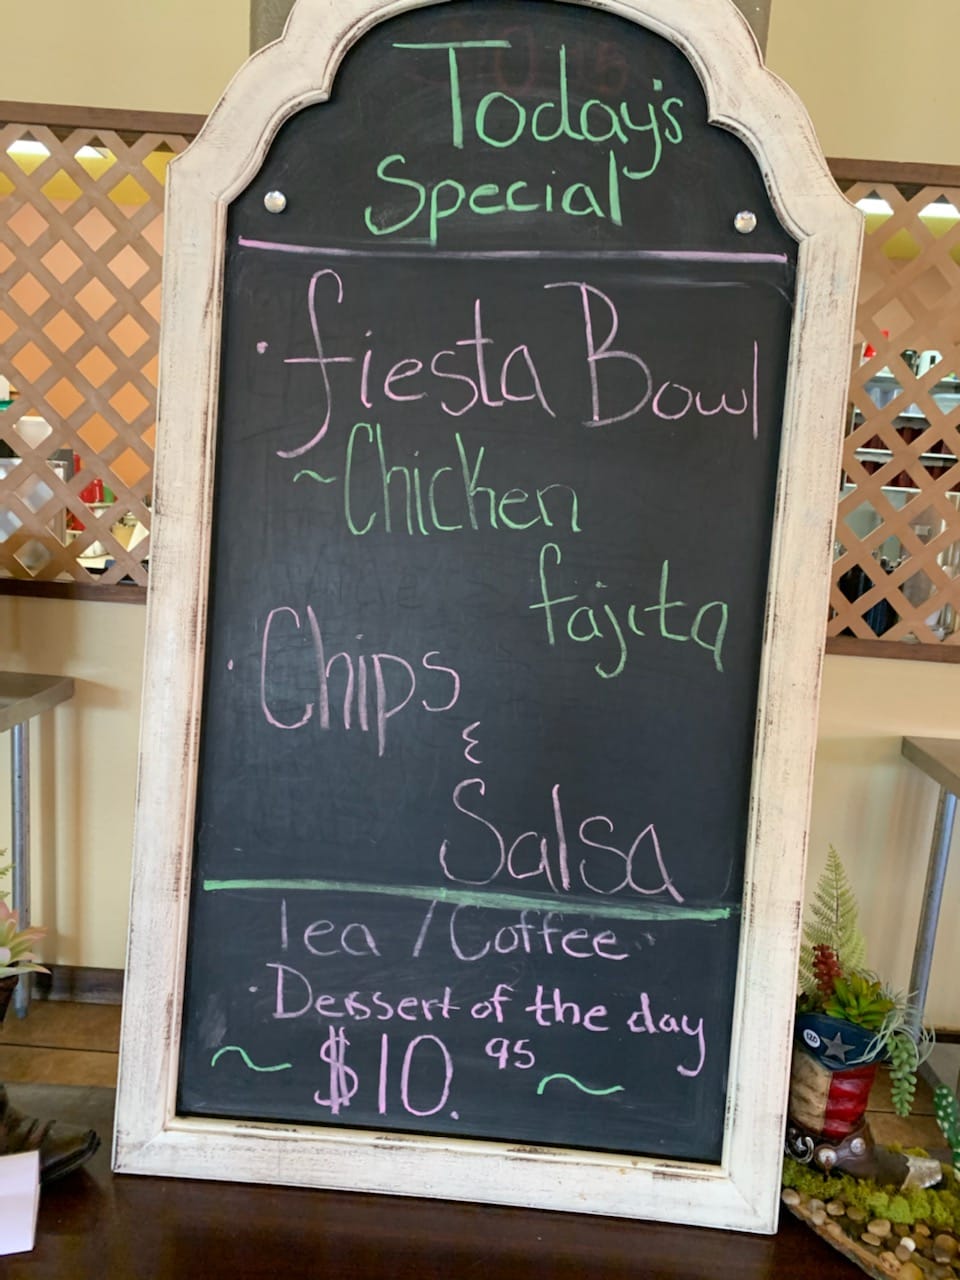 Today's
Special
· Fiesta Bowl
~ Chicken
fajita
· Chips
&
Salsa
Tea / Coffee
· Dessert of the day
~ $10.95 ~